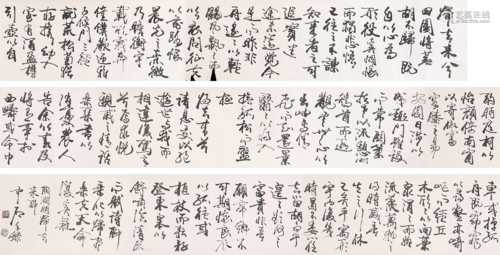 歸去來兮
田園將蕪
胡不歸既
自以心為
形役奚惆悵
而獨悲悟
已往之不諫
知來者之可
追實迷
途其未遠覺今
是而昨非
舟遙遙以輕
颺風飄飄而
吹衣問征夫
以前路恨
晨光之熹微
乃瞻衡宇
載欣載奔
僮僕歡迎稚
子候門三徑
就荒松菊猶
存攜幼入
室有酒盈樽
引壺觴以自
酌眄庭柯以
怡顏倚南窗
以寄傲審
容膝之易
安園日涉
以成趣門雖設
而常關策
扶老以流憩
時矯首而遐
觀雲無心以
出岫鳥倦
飛而知還景
翳翳以將入
撫孤松而盤
桓
歸去來兮
請息交以絕
游世與我而
相違復駕言
兮焉求悅親
戚之情話樂
琴書以消憂
農人
告余以春及
將有事於
西疇或命巾
車或棹孤
舟既窈窕
以尋壑亦崎
嶇而經丘
木欣欣以向榮
泉涓涓而始
流善萬物之
得時感吾
生之行休
已矣乎寓形
宇內復幾
時曷不委心任
去留胡為
遑遑欲何之
富貴非吾
願帝鄉不
可期懷良辰
以孤往或
植杖而耘耔
登東皋以
舒嘯臨清流
而賦詩聊
乘化以歸盡
樂夫天命
復奚疑
陶淵明歸去
來辭